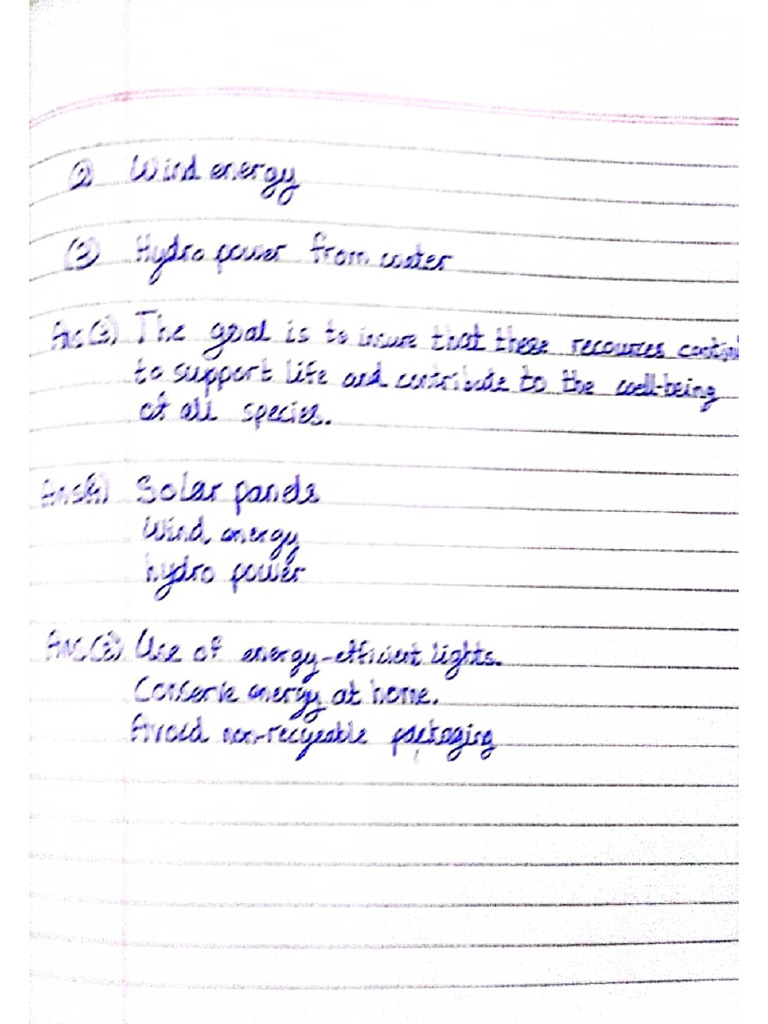 (2) Wind energy
(3) Hydro power from water
Ans(3) The goal is to insure that these recources
to support life and contribute to the well-being
of all species.
Solar panels
Wind energy
hydro power
Use of energy-efficient lights.
Conserve energy at home.
Avoid non-recyeable packaging